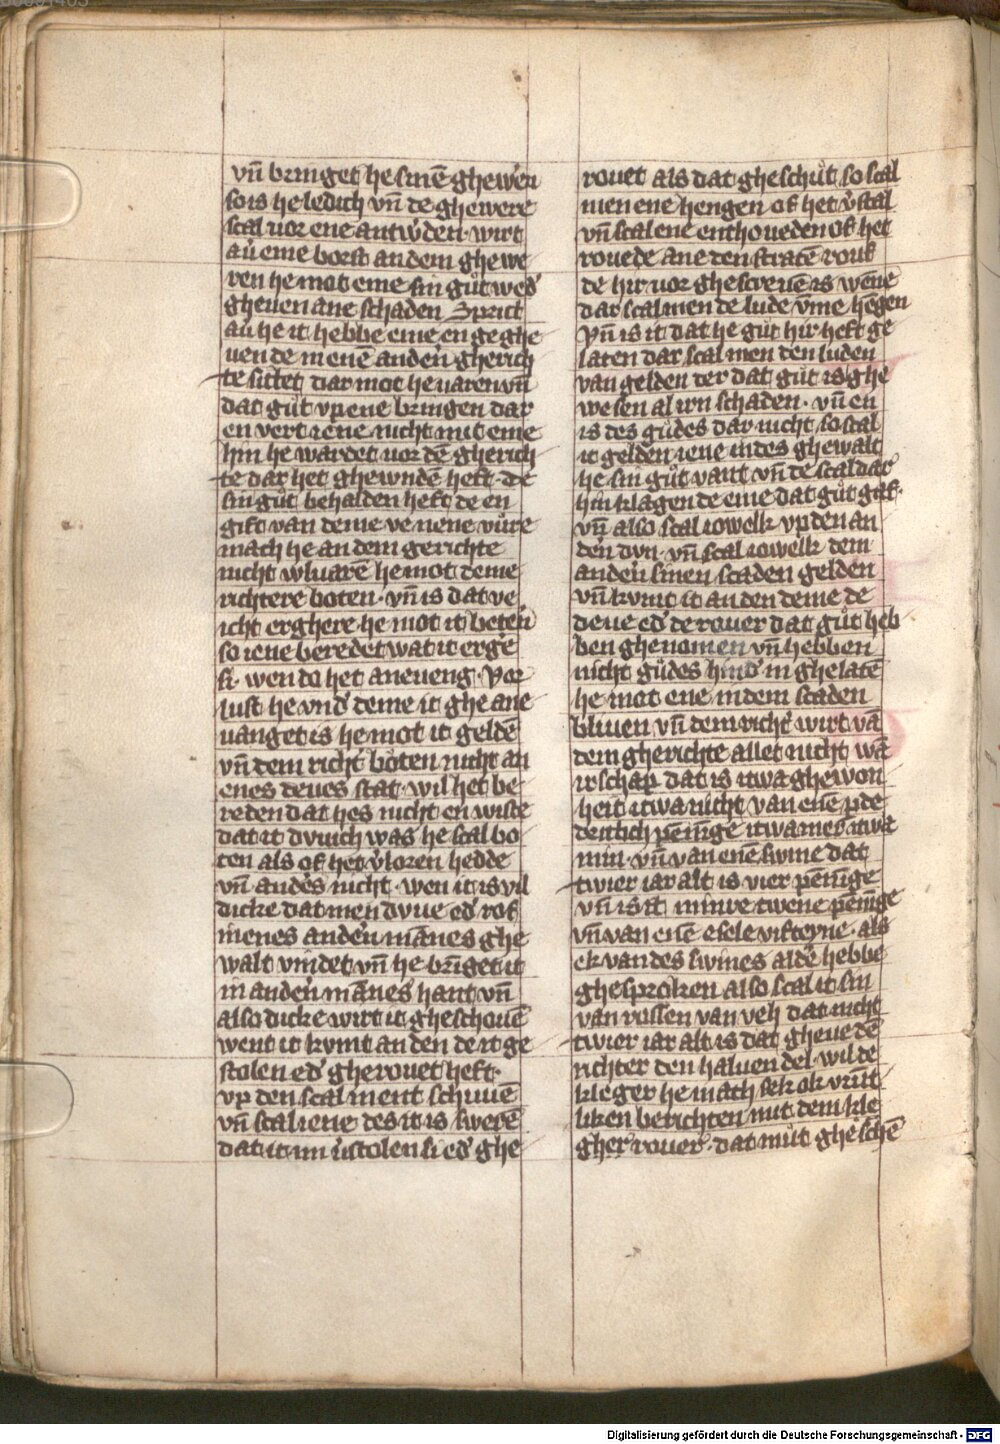 vn̄ bringet he sinē ghewen
so is he ledich vn̄ de ghewere
scal uor ene antw̓den· wirt
au̓ eme borst an dem ghewe
ren he mot eme sin gůt wed̓
gheuen ane schaden Sprict
au̓ he it hebbe eme en geghe
uen de in eneme anden̓ gherich
te sittet dar mot he uaren vn̄
dat gůt vp ene bringen dar
en vert iene nicht mit eme
hin he wardet uor dē gherich
te dar het ghewndē heft· de
sin gůt behalden heft de en
gift van deme ve nene vůre
mach he an dem gerichte
nicht wluarē he mot deme
richtere boten· vn̄ is dat ve
icht erghere he mot it beten̓
so iene beredet wat it erge
si· wen do het aneueng· Vor
lust he vnd̓ deme it ghe ane
uanget is he mot it geldē
vn̄ dem richt̓ bôten nicht an
enes deues stat· wil het be
reden dat hes nicht en wiste
dat it dvuich was he scal bo
ten als of het v̓loren hedde
vn̄ anders nicht· wen it is vil
dicke dat men dvue ed̓ rof
inenes anden̓ mānes ghe
walt vindet vn̄ he bringet it
in anden̓ mānes hant vn̄
also dicke wirt it gheschouē
went it kvmt an den de it ge
stolen ed̓ gherouet heft·
vp den scal ment schiuuē
vn̄ scal iene des it is swerē
dat it im v̓stolen si ed̓ ghe
rouet als dat gheschůt so scal
men ene hengen of het v̓stal
vn̄ scal ene enthoueden of het
rouede ane den stratē rouf
de hir uor ghescreuē is wēne
dar scal men de lude v̄me hēgen
Vn̄ is it dat he gůt hir heft ge
laten dar scal men den luden
van gelden der dat gůt is ghe
wesen al irn schaden· vn̄ en
is des gůdes dar nicht so scal
it gelden iene indes ghewalt
he sin gůt vant vn̄ de scal dar
hin klagen de eme dat gůt gaf·
vn̄ also scal iowelk vp den an
den̓ dvn· vn̄ scal iowelk dem
anden̓ sinen scaden gelden
vn̄ kvmt it an den deme de
deue ed̓ de rouer dat gůt heb
ben ghenomen vn̄ hebben
nicht gůdes hind̓ in ghelatē
he mot ene indem scaden
bliuen vn̄ dem richt̓ wirt vā
dem gherichte allet nicht wā
irschap dat is itwa ghewon
heit itwa nicht van enē pde
dentlich pēnīge itwa mes itwa
min· vn̄ van enē swine dat
twier iar alt is vier pēnīge
vn̄ is it minre twene pēnīge
vn̄ van enē esele vifteyne· als
ek van des swines aldē hebbe
ghesproken also scal it sin
van rossen van veh dat nicht
twier iar alt is dat gheue dē
richter den haluen del· wil de
kleger he mach sek ok vrūt
liken berichten mit dem kle
gher rouer· dat můt gheschē